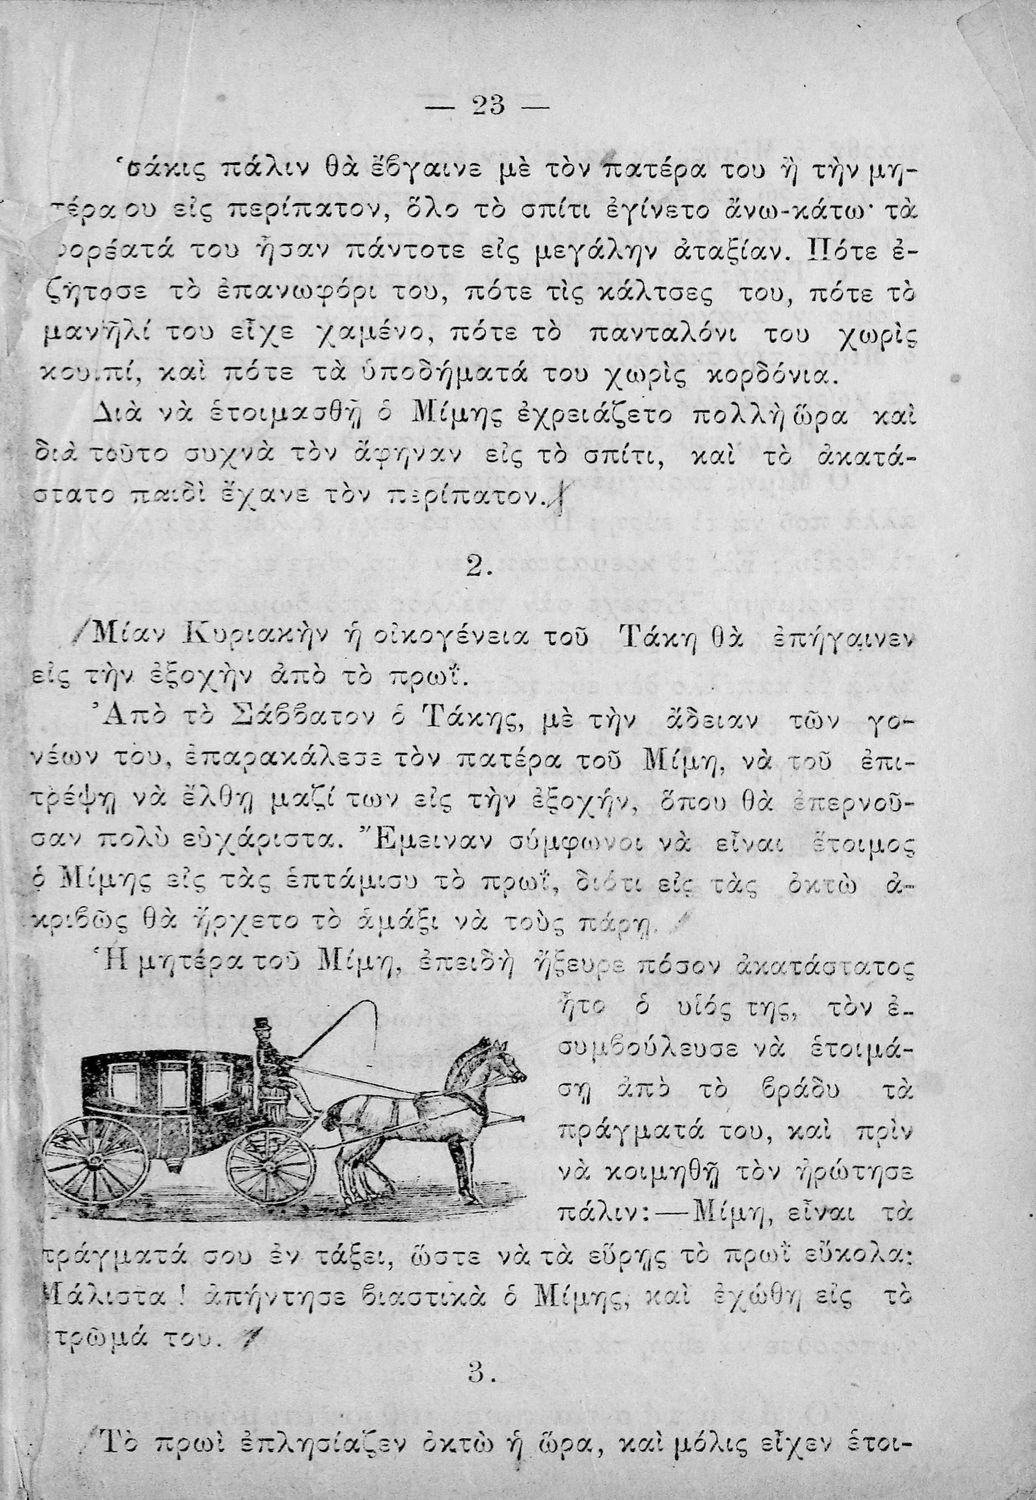 — 23 —
Ὁσάκις πάλιν θὰ ἔβγαινε μὲ τὸν πατέρα του ἢ τὴν μη-
τέρα ου εἰς περίπατον, ὅλο τὸ σπίτι ἐγίνετο ἄνω-κάτω· τὰ
φορέατά του ἦσαν πάντοτε εἰς μεγάλην ἀταξίαν. Πότε ἐ-
ζήτοσε τὸ ἐπανωφόρι του, πότε τὶς κάλτσες του, πότε τὸ
μανῆλί του εἶχε χαμένο, πότε τὸ πανταλόνι του χωρὶς
κουμπί, καὶ πότε τὰ ὑποδήματά του χωρὶς κορδόνια.
Διὰ νὰ ἑτοιμασθῇ ὁ Μίμης ἐχρειάζετο πολλὴ ὥρα καὶ
διὰ τοῦτο συχνὰ τὸν ἄφηναν εἰς τὸ σπίτι, καὶ τὸ ἀκατά-
στατο παιδὶ ἔχανε τὸν περίπατον.
2.
Μίαν Κυριακὴν ἡ οἰκογένεια τοῦ Τάκη θὰ ἐπήγαινεν
εἰς τὴν ἐξοχὴν ἀπὸ τὸ πρωΐ.
Ἀπὸ τὸ Σάββατον ὁ Τάκης, μὲ τὴν ἄδειαν τῶν γο-
νέων του, ἐπαρακάλεσε τὸν πατέρα τοῦ Μίμη, νὰ τοῦ ἐπι-
τρέψῃ νὰ ἔλθῃ μαζί των εἰς τὴν ἐξοχήν, ὅπου θὰ ἐπερνοῦ-
σαν πολὺ εὐχάριστα. Ἔμειναν σύμφωνοι νὰ εἶναι ἕτοιμος
ὁ Μίμης εἰς τὰς ἑπτάμισυ τὸ πρωΐ, διότι εἰς τὰς ὀκτὼ ἀ-
κριβῶς θὰ ἤρχετο τὸ ἁμάξι νὰ τοὺς πάρῃ.
Ἡ μητέρα τοῦ Μίμη, ἐπειδὴ ἤξευρε πόσον ἀκατάστατος
ἦτο ὁ υἱός της, τὸν ἐ-
συμβούλευσε νὰ ἑτοιμά-
σῃ ἀπὸ τὸ βράδυ τὰ
πράγματά του, καὶ πρὶν
νὰ κοιμηθῇ τὸν ἠρώτησε
πάλιν:—Μίμη, εἶναι τὰ
πράγματά σου ἐν τάξει, ὥστε νὰ τὰ εὕρῃς τὸ πρωῒ εὔκολα;
Μάλιστα! ἀπήντησε βιαστικὰ ὁ Μίμης, καὶ ἐχώθη εἰς τὸ
στρῶμά του.
3.
Τὸ πρωὶ ἐπλησίαζεν ὀκτὼ ἡ ὥρα, καὶ μόλις εἶχεν ἑτοι-